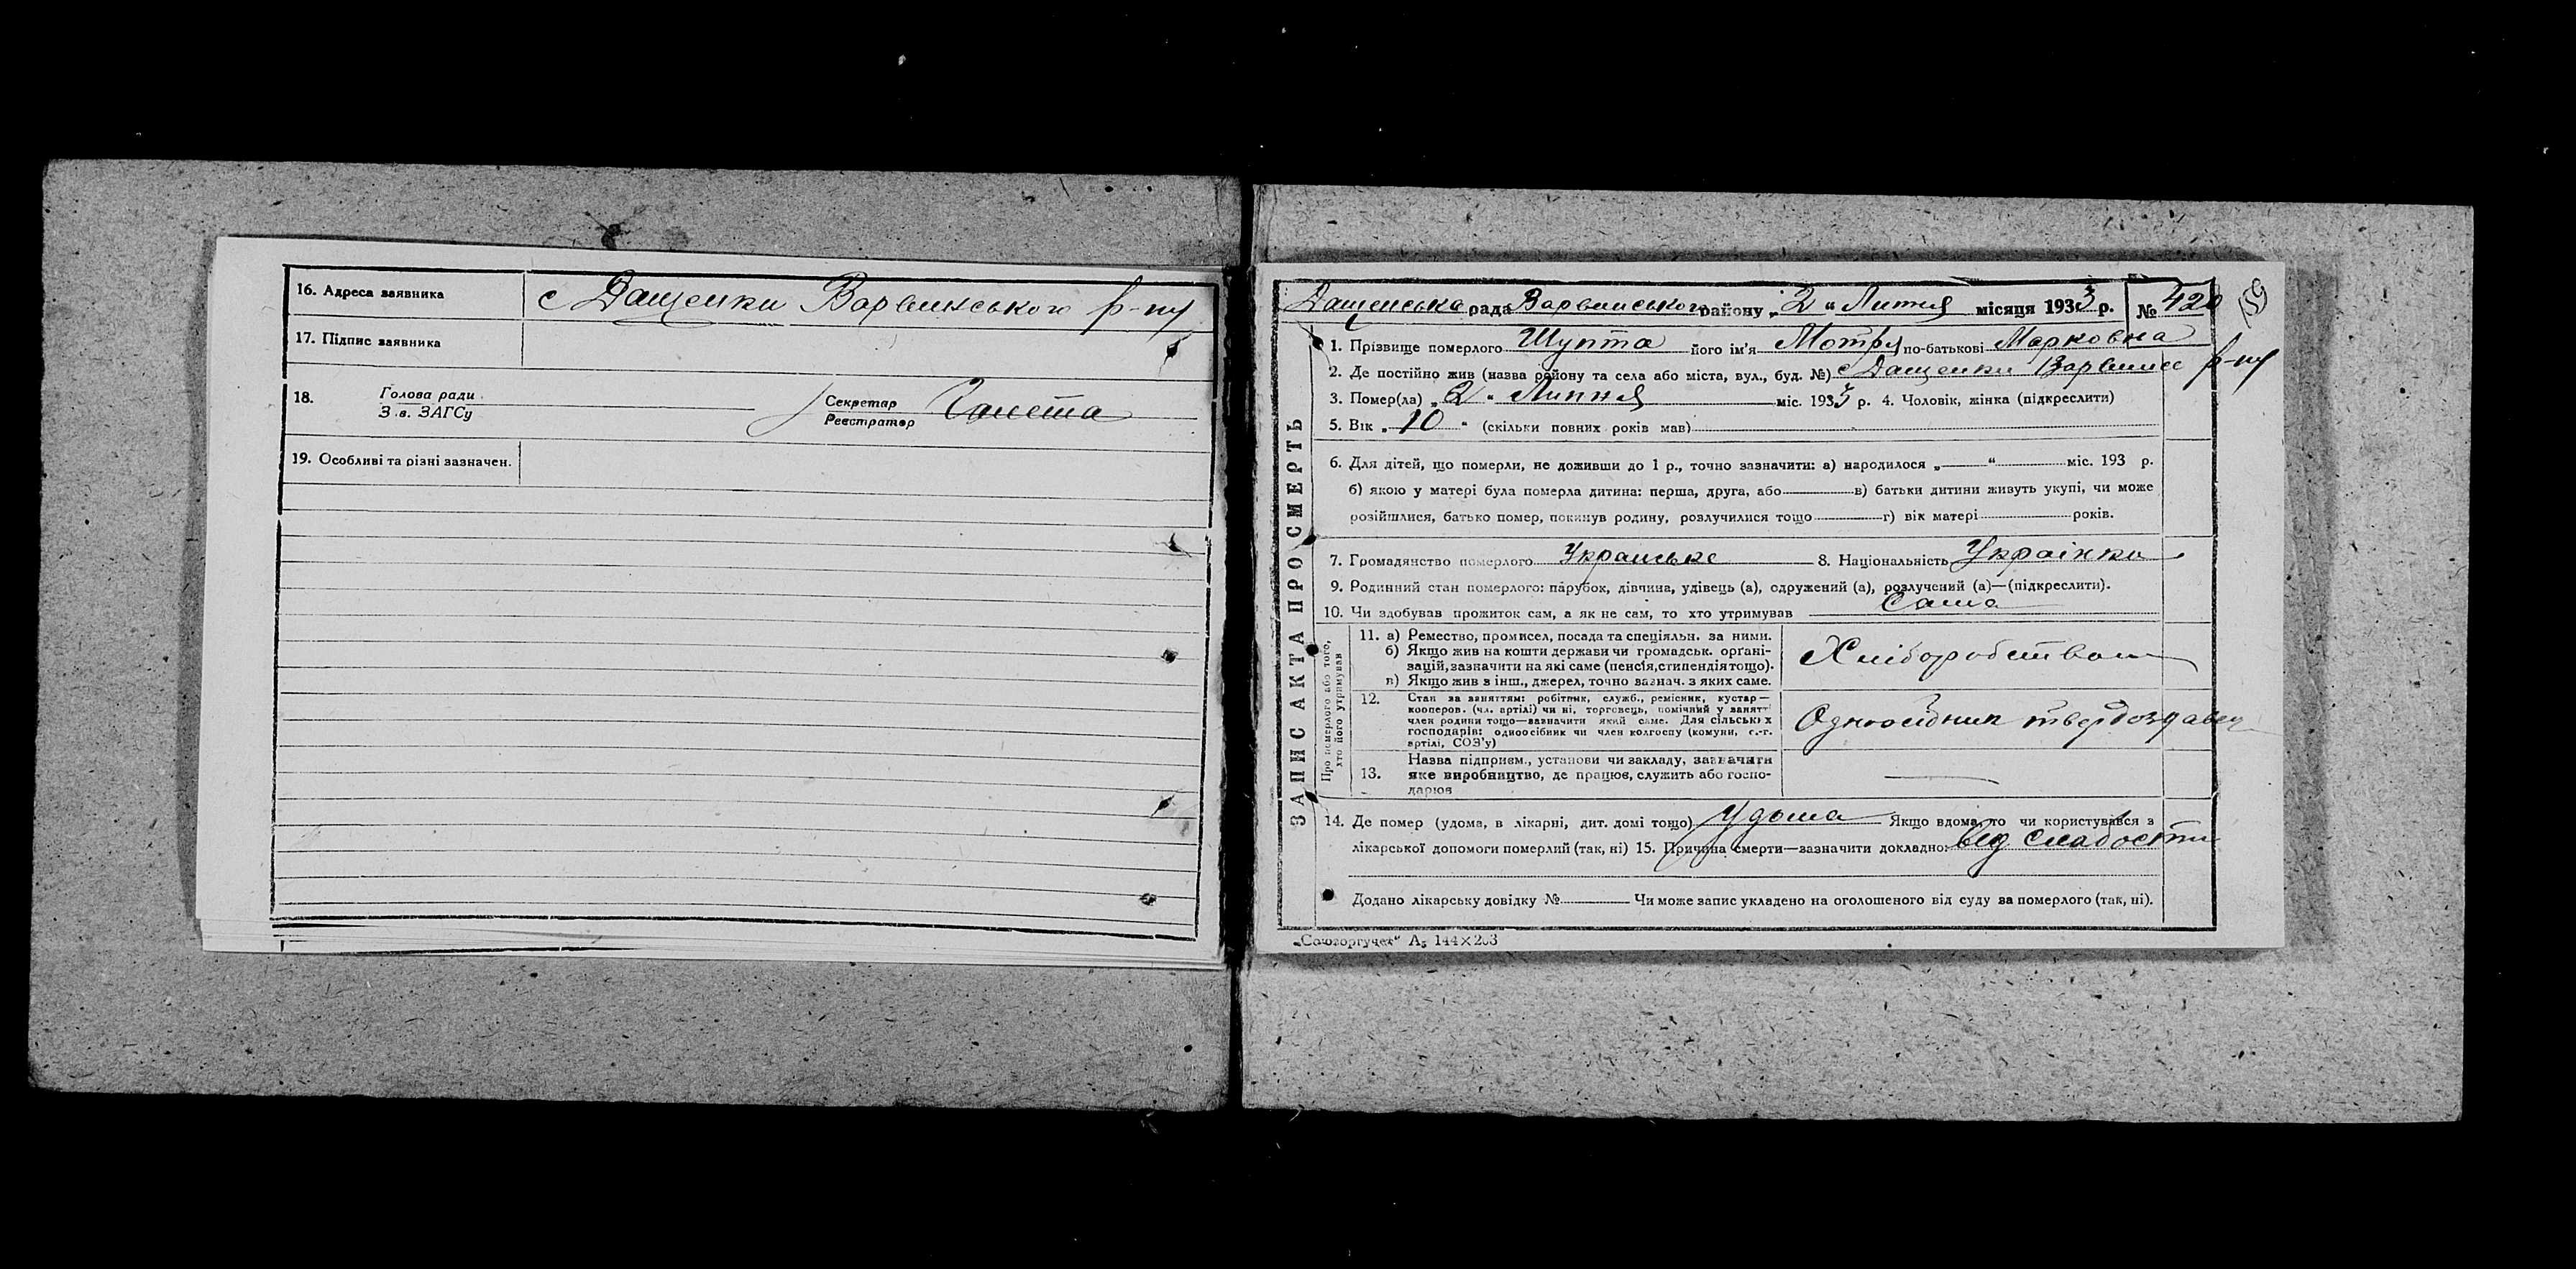 16. Адреса заявника с Дащенки Варвинського р-ну
17. Підпис заявника
18. Голова ради
З.в. ЗАГСу
Секретар
Реєстратор Галета
19. Особливі та різні зазначен.
Дащенська рада Варвинського району „2“ Липня місяця 1933 р. № 420
159
1. Прізвище померлого Шупта його ім'я Мотря по-батькові Марковна
2. Де постійно жив (назва району та села або міста, вул., буд. №) с Дащенки Варвинсс р-ну
3. Помер(ла) „2“ Липня міс. 1933 р. 4. Чоловік, жінка (підкреслити)
5. Вік „10“ (скільки повних років мав)
6. Для дітей, що померли, не доживши до 1 р., точно зазначити: а) народилося „ “ міс. 193 р.
б) якою у матері була померла дитина: перша, друга, або в) батьки дитини живуть укупі, чи може
розійшлися, батько помер, покинув родину, розлучилися тощо г) вік матері років.
7. Громадянство померлого Украиньке 8. Національність Українка
9. Родинний стан померлого: парубок, дівчина, удівець (а), одружений (а), розлучений (а)—(підкреслити).
10. Чи здобував прожиток сам, а як не сам, то хто утримував Сама
ЗАПИС АКТА ПРО СМЕРТЬ
Про померлого або того,
хто його утримував
11. а) Ремество, промисел, посада та спеціяльн. за ними.
б) Якщо жив на кошти держави чи громадськ. орґані-
зацій, зазначити на які саме (пенсія, стипендія тощо).
в) Якщо жив з інш., джерел, точно зазнач. з яких саме.
Хліборобством
12. Стан за заняттям: робітник, служб., ремісник, кустар—
кооперов. (чл. артілі) чи ні, торговець, помічний у занятті
член родини тощо—зазначити який саме. Для сільських
господарів: одноосібник чи член колгоспу (комуни, с.-г.
артілі, СОЗ'у)
Одноосібник твердоздавец
13. Назва підприєм., установи чи закладу, зазначити
яке виробництво, де працює, служить або госпо-
дарює
14. Де помер (удома, в лікарні, дит. домі тощо) Удома Якщо вдома, то чи користувався з
лікарської допомоги померлий (так, ні) 15. Причина смерти—зазначити докладно: від слабости
Додано лікарську довідку № Чи може запис укладено на оголошеного від суду за померлого (так, ні).
„Союзоргучет“ А₅ 144×203